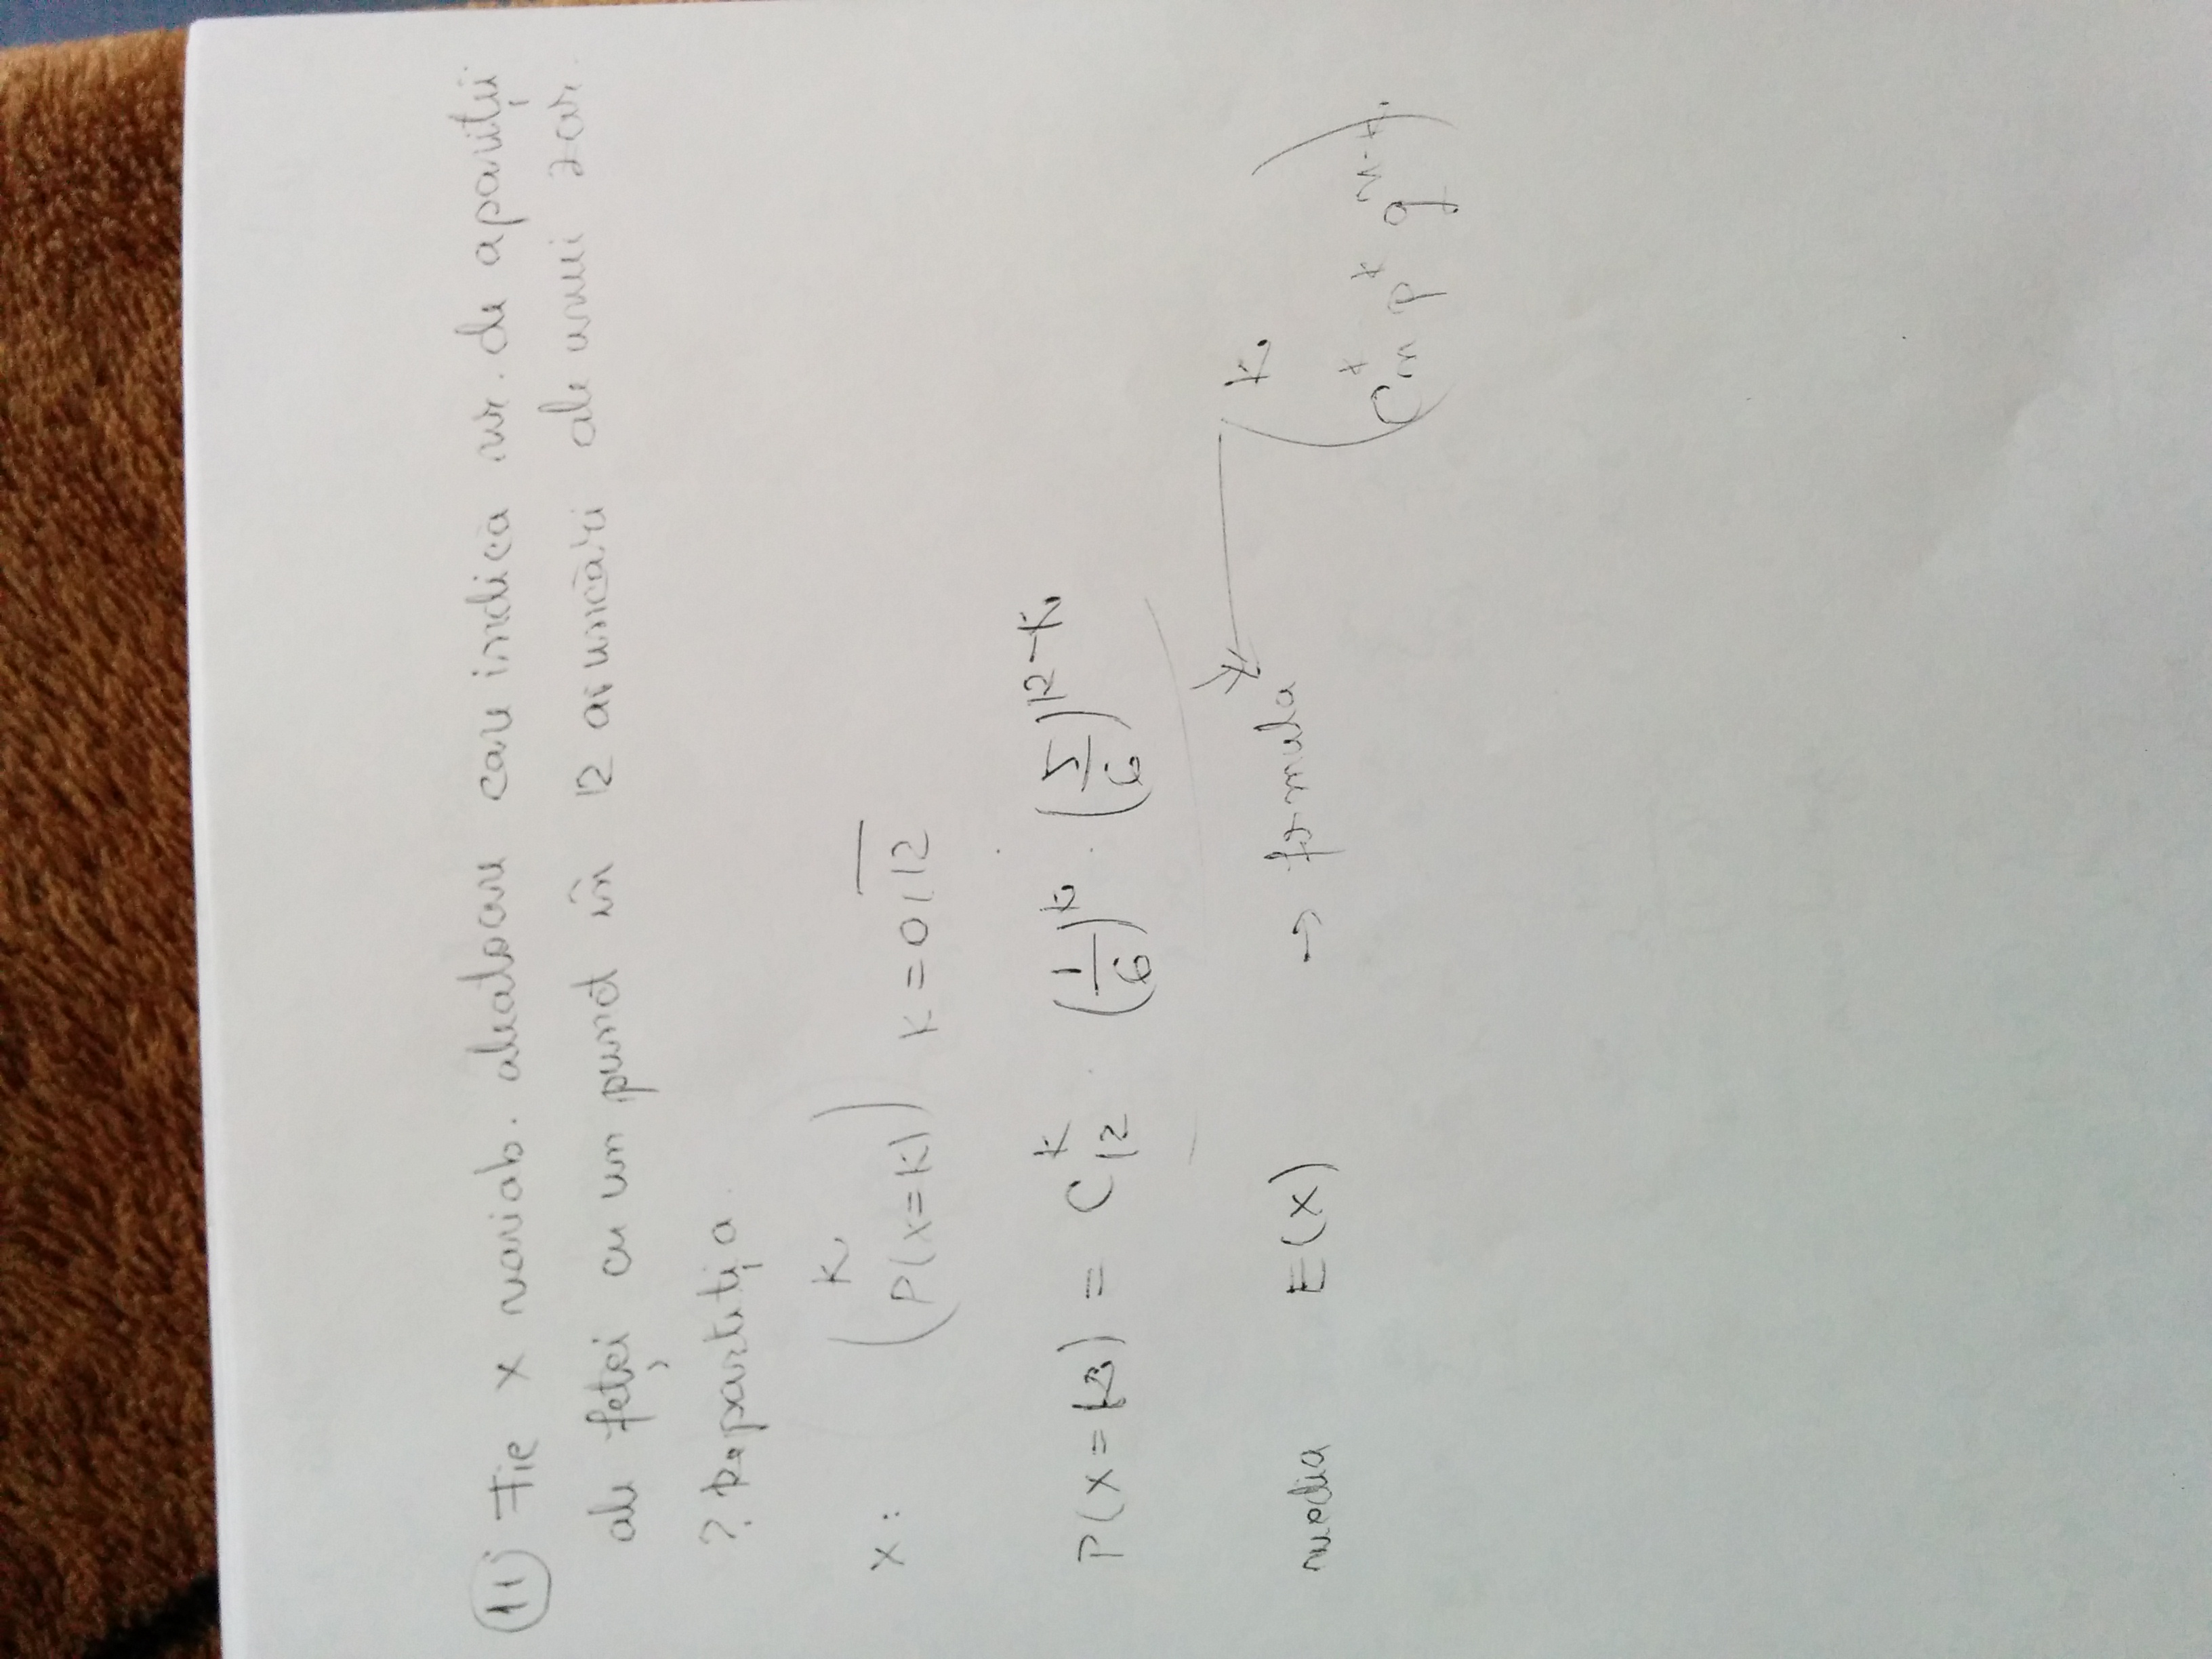 11 Fie X variab. aleatoare care indică nr. de apariții
ale feței cu un punct în 12 aruncări ale unui zar.
? Repartiția.
X: ( k / P(X=k) ) k = 0,12
P(X=k) = C_12^k · (1/6)^k · (5/6)^(12-k)
media E(X) → formula
( k / C_n^k p^k q^(n-k) )